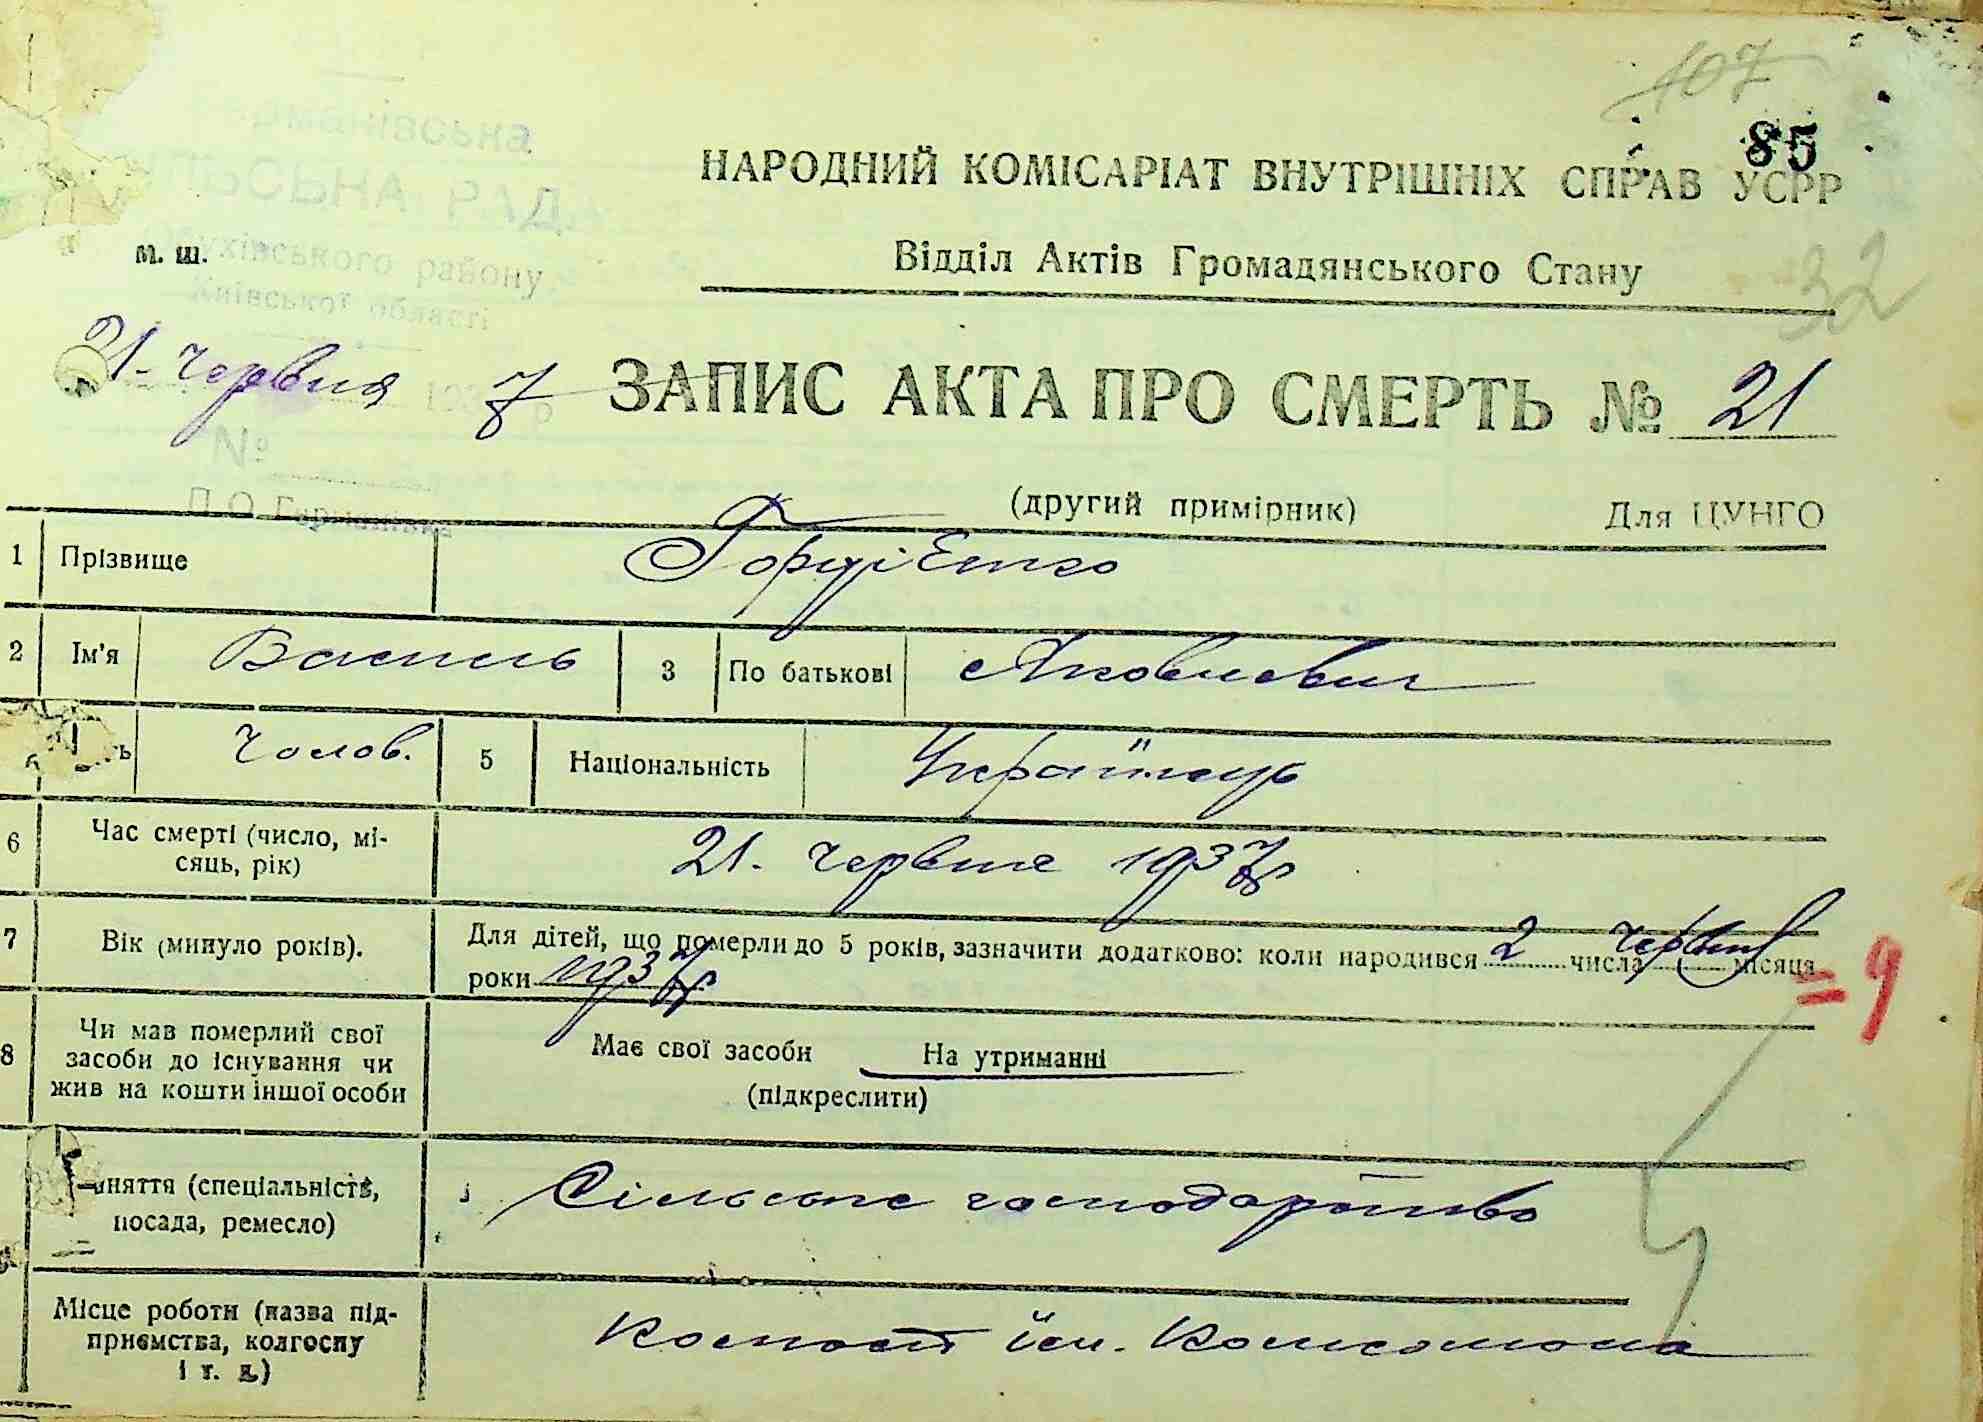 107
85
Германівська
СІЛЬСЬКА РАДА
Обухівського району
Київської області
НАРОДНИЙ КОМІСАРІАТ ВНУТРІШНІХ СПРАВ УСРР
м. ш.
Відділ Актів Громадянського Стану
32
21. червня 1937 р
ЗАПИС АКТА ПРО СМЕРТЬ № 21
№
П.О Германівка
(другий примірник) Для ЦУНГО
1 Прізвище Гордієнко
2 Ім'я Василь 3 По батькові Яковлевич
ть Чолов. 5 Національність Українець
6 Час смерті (число, мі-
сяць, рік) 21. червня 1937 р
7 Вік (минуло років). Для дітей, що померли до 5 років, зазначити додатково: коли народився 2 числа червня місяця
роки 1937 р
= 9
8 Чи мав померлий свої
засоби до існування чи
жив на кошти іншої особи
Має свої засоби На утриманні
(підкреслити)
няття (спеціальність,
посада, ремесло) Сільське господарство
Місце роботи (назва під-
приємства, колгоспу
і т. д.)
Колгосп ім. Комсомола